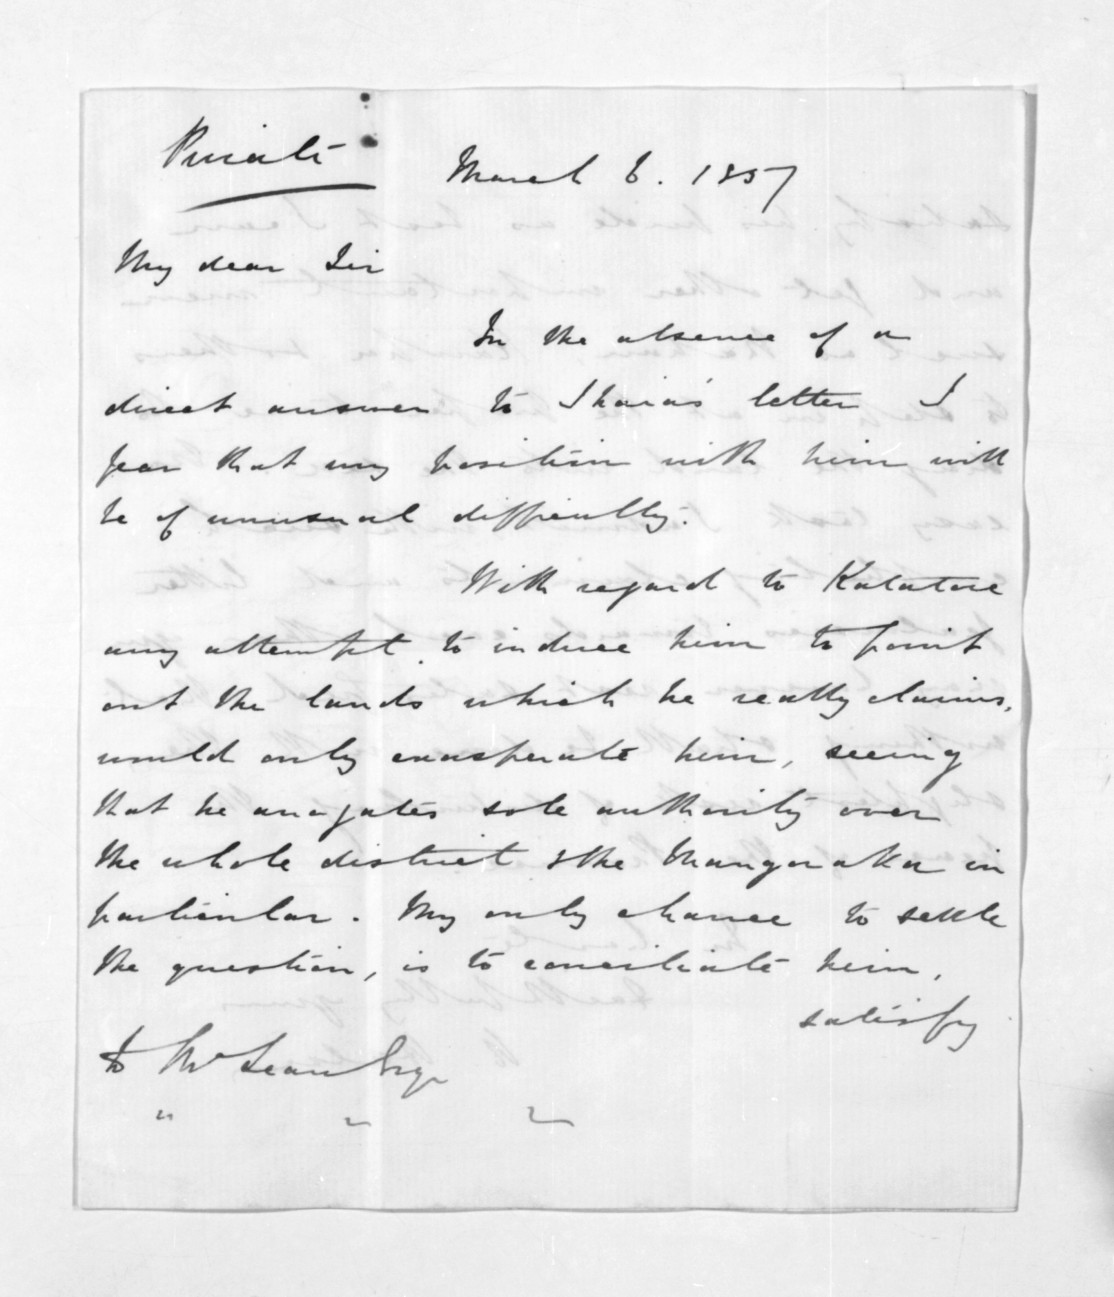 Private
March 6. 1857
My dear Sir
In the absence of a
direct answer to Ihaia's letter I
fear that my position with him will
be of unusual difficulty.
With regard to Katatore
any attempt to induce him to point
out the lands which he really claims,
would only exasperate him, seeing
that he arrogates sole authority over
the whole district & the Mangoraka in
particular. My only chance to settle
the question, is to conciliate him,
satisfy
McLean Esqr
" " "